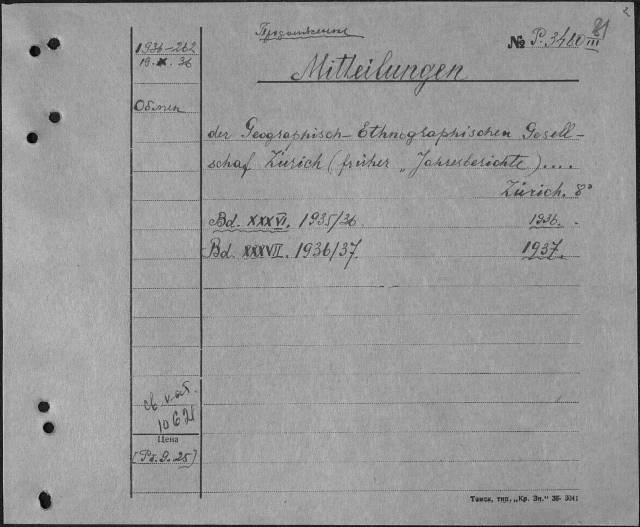 2
Продолжение
№ P. 3480 III
21
1936-262
19. X. 36
Mitteilungen
Обмен
der Geographisch-Ethnographischen Gesell-
schaf Zürich (früher „Jahresberichte) ....
Zürich. 8°
Bd. XXXVI. 1935/36. 1936.
Bd. XXXVII. 1936/37. 1937.
1062
Цена
[Рб. 9. 25]
Томск, тип. „Кр. Зн.“ 36 3041